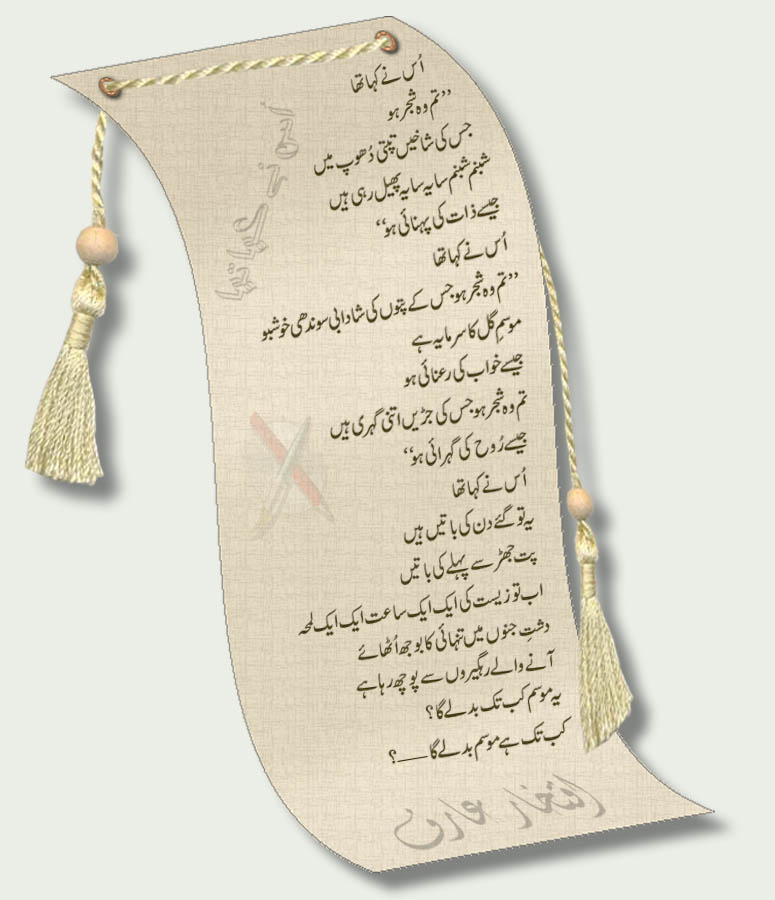 اُس نے کہا تھا
اُس نے کہا تھا
’’تم وہ شجر ہو
جس کی شاخیں تپتی دُھوپ میں
شبنم شبنم سایہ سایہ پھیل رہی ہیں
جیسے ذات کی پہنائی ہو‘‘
اُس نے کہا تھا
’’تم وہ شجر ہو جس کے پتوں کی شادابی سوندھی خوشبو
موسمِ گل کا سرمایہ ہے
جیسے خواب کی رعنائی ہو
تم وہ شجر ہو جس کی جڑیں اتنی گہری ہیں
جیسے رُوح کی گہرائی ہو‘‘
اُس نے کہا تھا
یہ تو گئے دن کی باتیں ہیں
پت جھڑ سے پہلے کی باتیں
اب تو زیست کی ایک ایک ساعت ایک ایک لمحہ
دشتِ جنوں میں تنہائی کا بوجھ اُٹھائے
آنے والے رہگیروں سے پوچھ رہا ہے
یہ موسم کب تک بدلے گا؟
کب تک ہے موسم بدلے گا ___؟
افتخار عارف